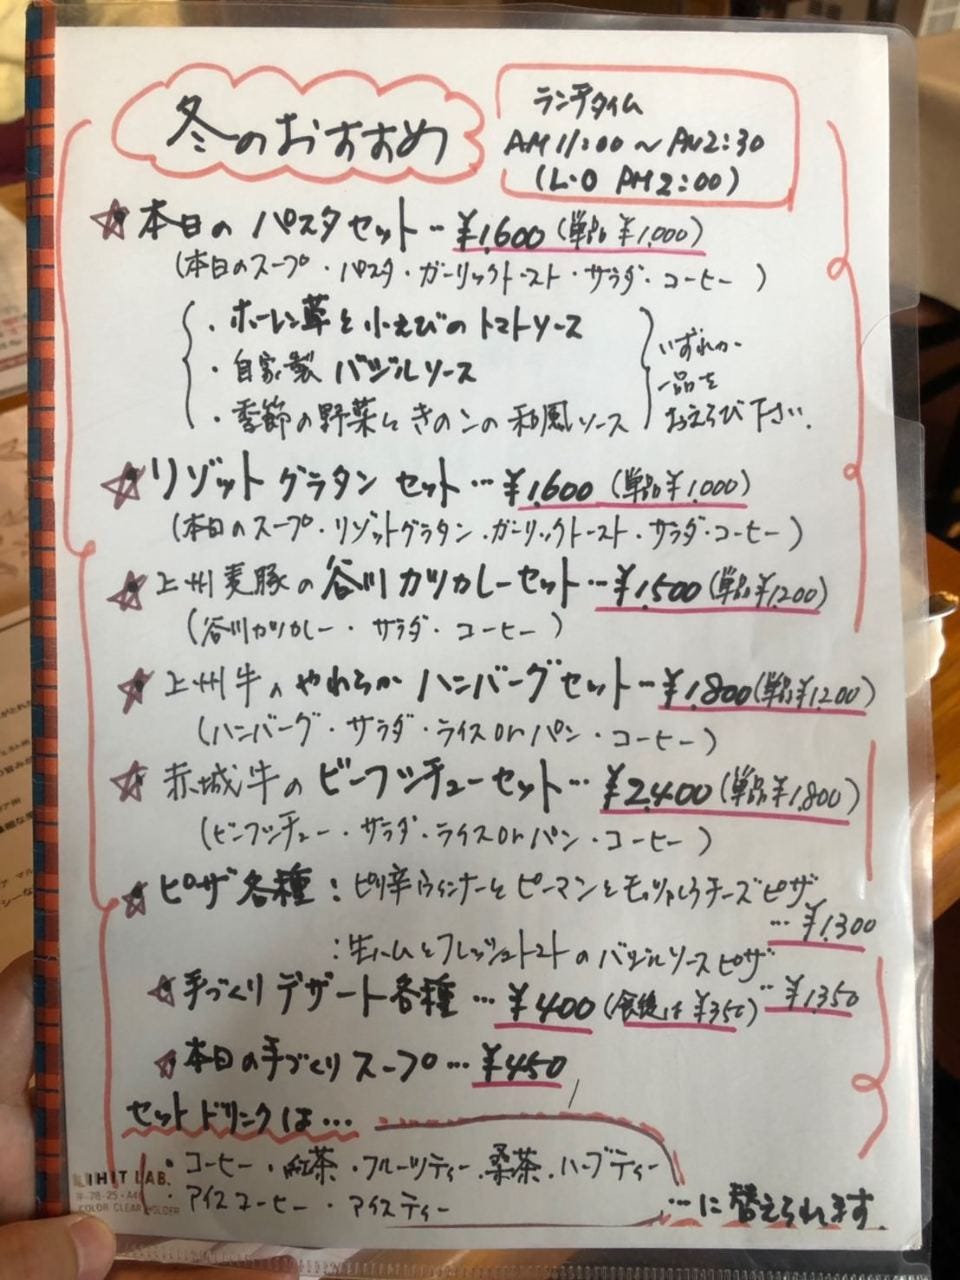 冬のおすすめ
ランチタイム
AM11:00～PM2:30
(L.O PM2:00)
☆本日のパスタセット…¥1,600(単品¥1,000)
(本日のスープ・パスタ・ガーリックトースト・サラダ・コーヒー)
・ホーレン草と小えびのトマトソース
・自家製バジルソース
・季節の野菜ときのこの和風ソース
いずれか
一品を
おえらび下さい.
☆リゾットグラタンセット…¥1,600(単品¥1,000)
(本日のスープ・リゾットグラタン・ガーリックトースト・サラダ・コーヒー)
☆上州麦豚の谷川カツカレーセット…¥1,500(単品¥1,200)
(谷川カツカレー・サラダ・コーヒー)
☆上州牛のやわらかハンバーグセット…¥1,800(単品¥1,200)
(ハンバーグ・サラダ・ライスorパン・コーヒー)
☆赤城牛のビーフシチューセット…¥2,400(単品¥1,800)
(ビーフシチュー・サラダ・ライスorパン・コーヒー)
☆ピザ各種:ピリ辛ウィンナーとピーマンとモッツァレラチーズピザ
…¥1,300
:生ハムとフレッシュトマトのバジルソースピザ
…¥1,350
☆手づくりデザート各種…¥400(食後は¥350)
☆本日の手づくりスープ…¥450
セットドリンクは…
・コーヒー・紅茶・フルーツティー・桑茶・ハーブティー
・アイスコーヒー・アイスティー
…に替えられます.
LIHIT LAB.
COLOR CLEAR HOLDER